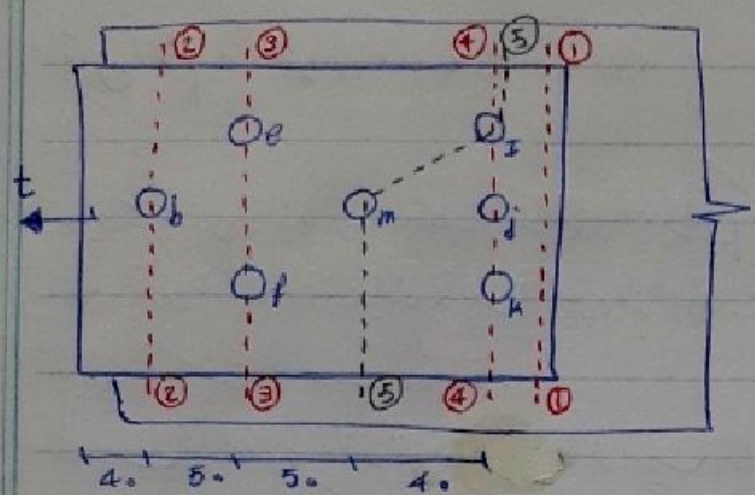 ② ③ ④ ⑤ ①
e I
t b m j
f k
② ③ ⑤ ④ ①
40 50 50 40